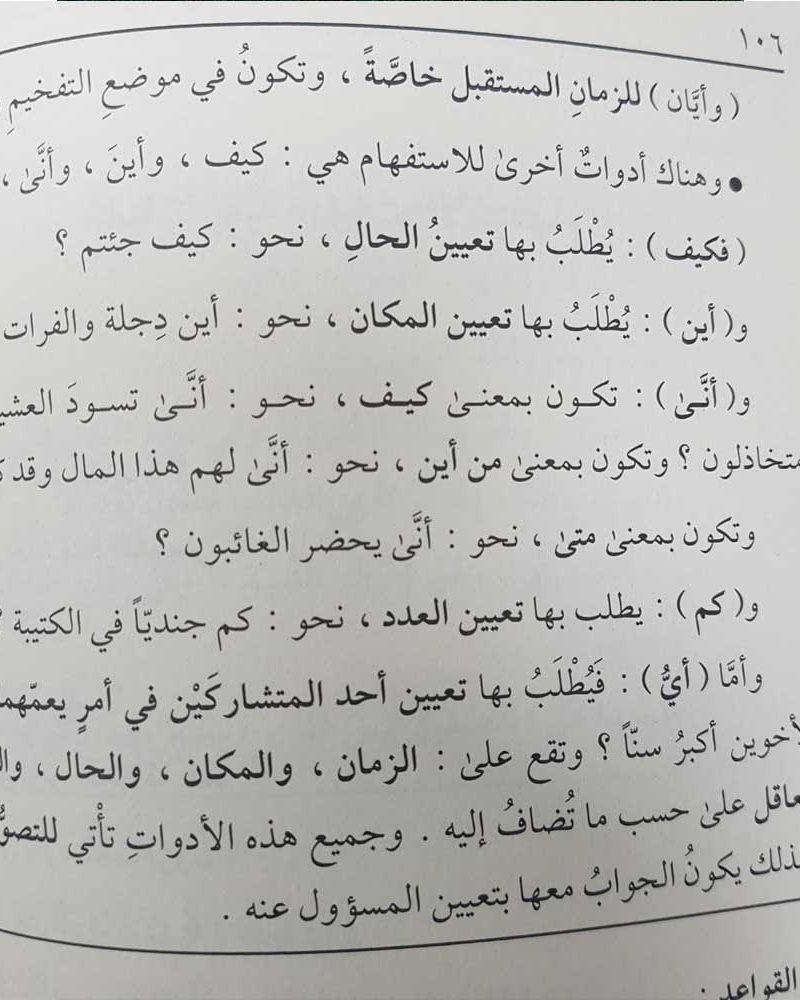 ١٠٦
( وأيَّان ) للزمانِ المستقبل خاصَّةً ، وتكونُ في موضعِ التفخيمِ
• وهناك أدواتٌ أخرىٰ للاستفهام هي : كيف ، وأينَ ، وأنَّىٰ ،
( فكيف ) : يُطْلَبُ بها تعيينُ الحالِ ، نحو : كيف جئتم ؟
و( أين ) : يُطْلَبُ بها تعيين المكان ، نحو : أين دِجلة والفرات
و( أنَّىٰ ) : تكـون بمعنـىٰ كيـف ، نحـو : أنَّـىٰ تسـودَ
متخاذلون ؟ وتكون بمعنىٰ من أين ، نحو : أنَّىٰ لهم هذا المال
وتكون بمعنىٰ متىٰ ، نحو : أنَّىٰ يحضر الغائبون ؟
و( كم ) : يطلب بها تعيين العدد ، نحو : كم جنديّاً في الكتيبة ؟
وأمَّا ( أيُّ ) : فَيُطْلَبُ بها تعيين أحد المتشاركَيْن في أمرٍ يعمّهم
أكبرُ سنّاً ؟ وتقع علىٰ : الزمان ، والمكان ، والحال ،
علىٰ حسب ما تُضافُ إليه . وجميع هذه الأدواتِ تأْتي
يكونُ الجوابُ معها بتعيين المسؤول عنه .
القواعد :